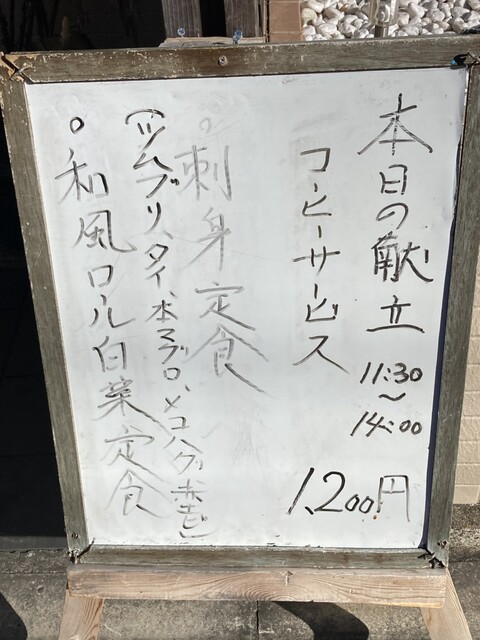 本日の献立
11:30
〜
14:00
コーヒーサービス
1,200円
○刺身定食
(ツムブリ、タイ、本マグロ、
○和風ロール白菜定食